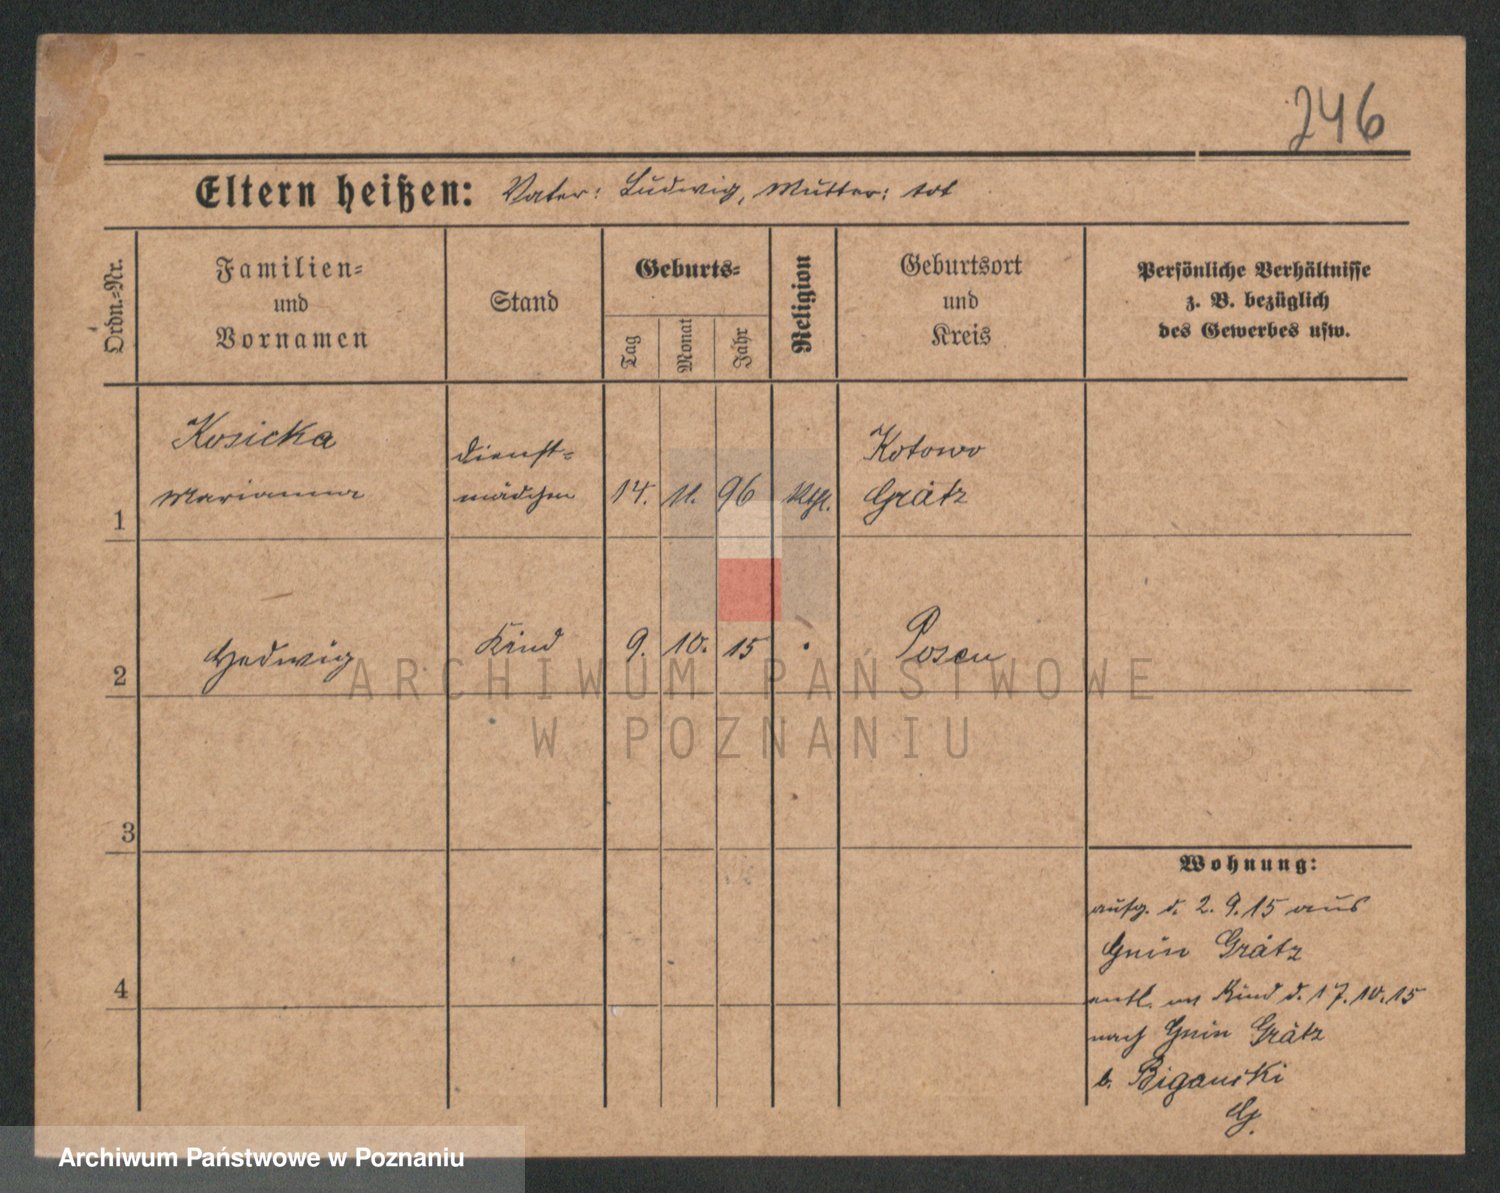 246
Eltern heißen: Vater: Ludwig, Mutter: tot
Ordn.-Nr.
Familien-
und
Vornamen
Stand
Geburts-
Tag
Monat
Jahr
Religion
Geburtsort
und
Kreis
Persönliche Verhältnisse
z. B. bezüglich
des Gewerbes usw.
1
Kosicka
Marianna
Dienst-
mädchen
14. 11. 96
kth.
Kotowo
Grätz
2
Hedwig
Kind
9. 10. 15
Posen
3
4
Wohnung:
aufg. d. 2. 9. 15 aus
Gnin Grätz
entl. m Kind d. 17. 10. 15
nach Gnin Grätz
b. Biganski
G.
ARCHIWUM PAŃSTWOWE
W POZNANIU
Archiwum Państwowe w Poznaniu